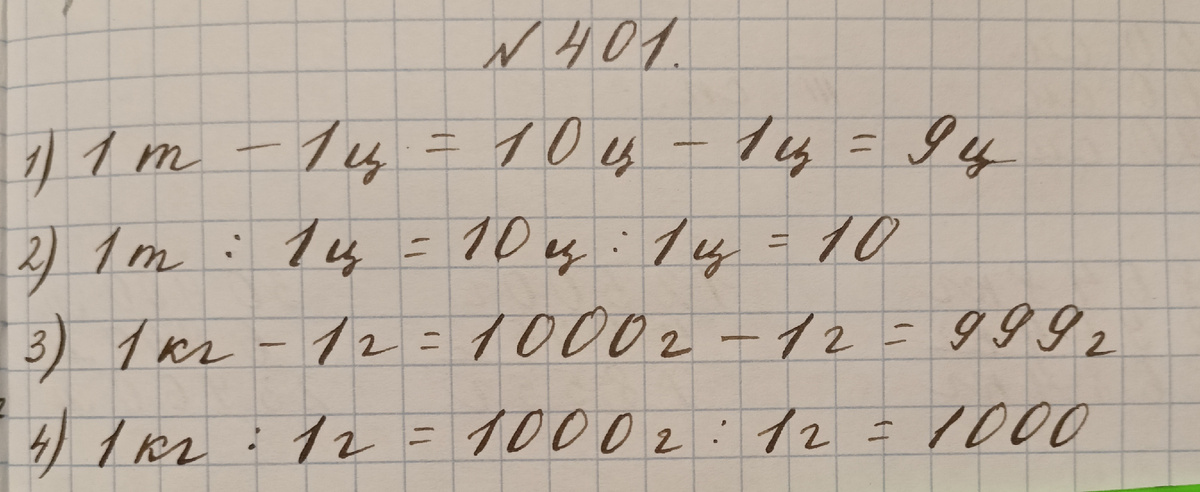 № 401.
1) 1 т - 1 ц = 10 ц - 1 ц = 9 ц
2) 1 т : 1 ц = 10 ц : 1 ц = 10
3) 1 кг - 1 г = 1000 г - 1 г = 999 г
4) 1 кг : 1 г = 1000 г : 1 г = 1000